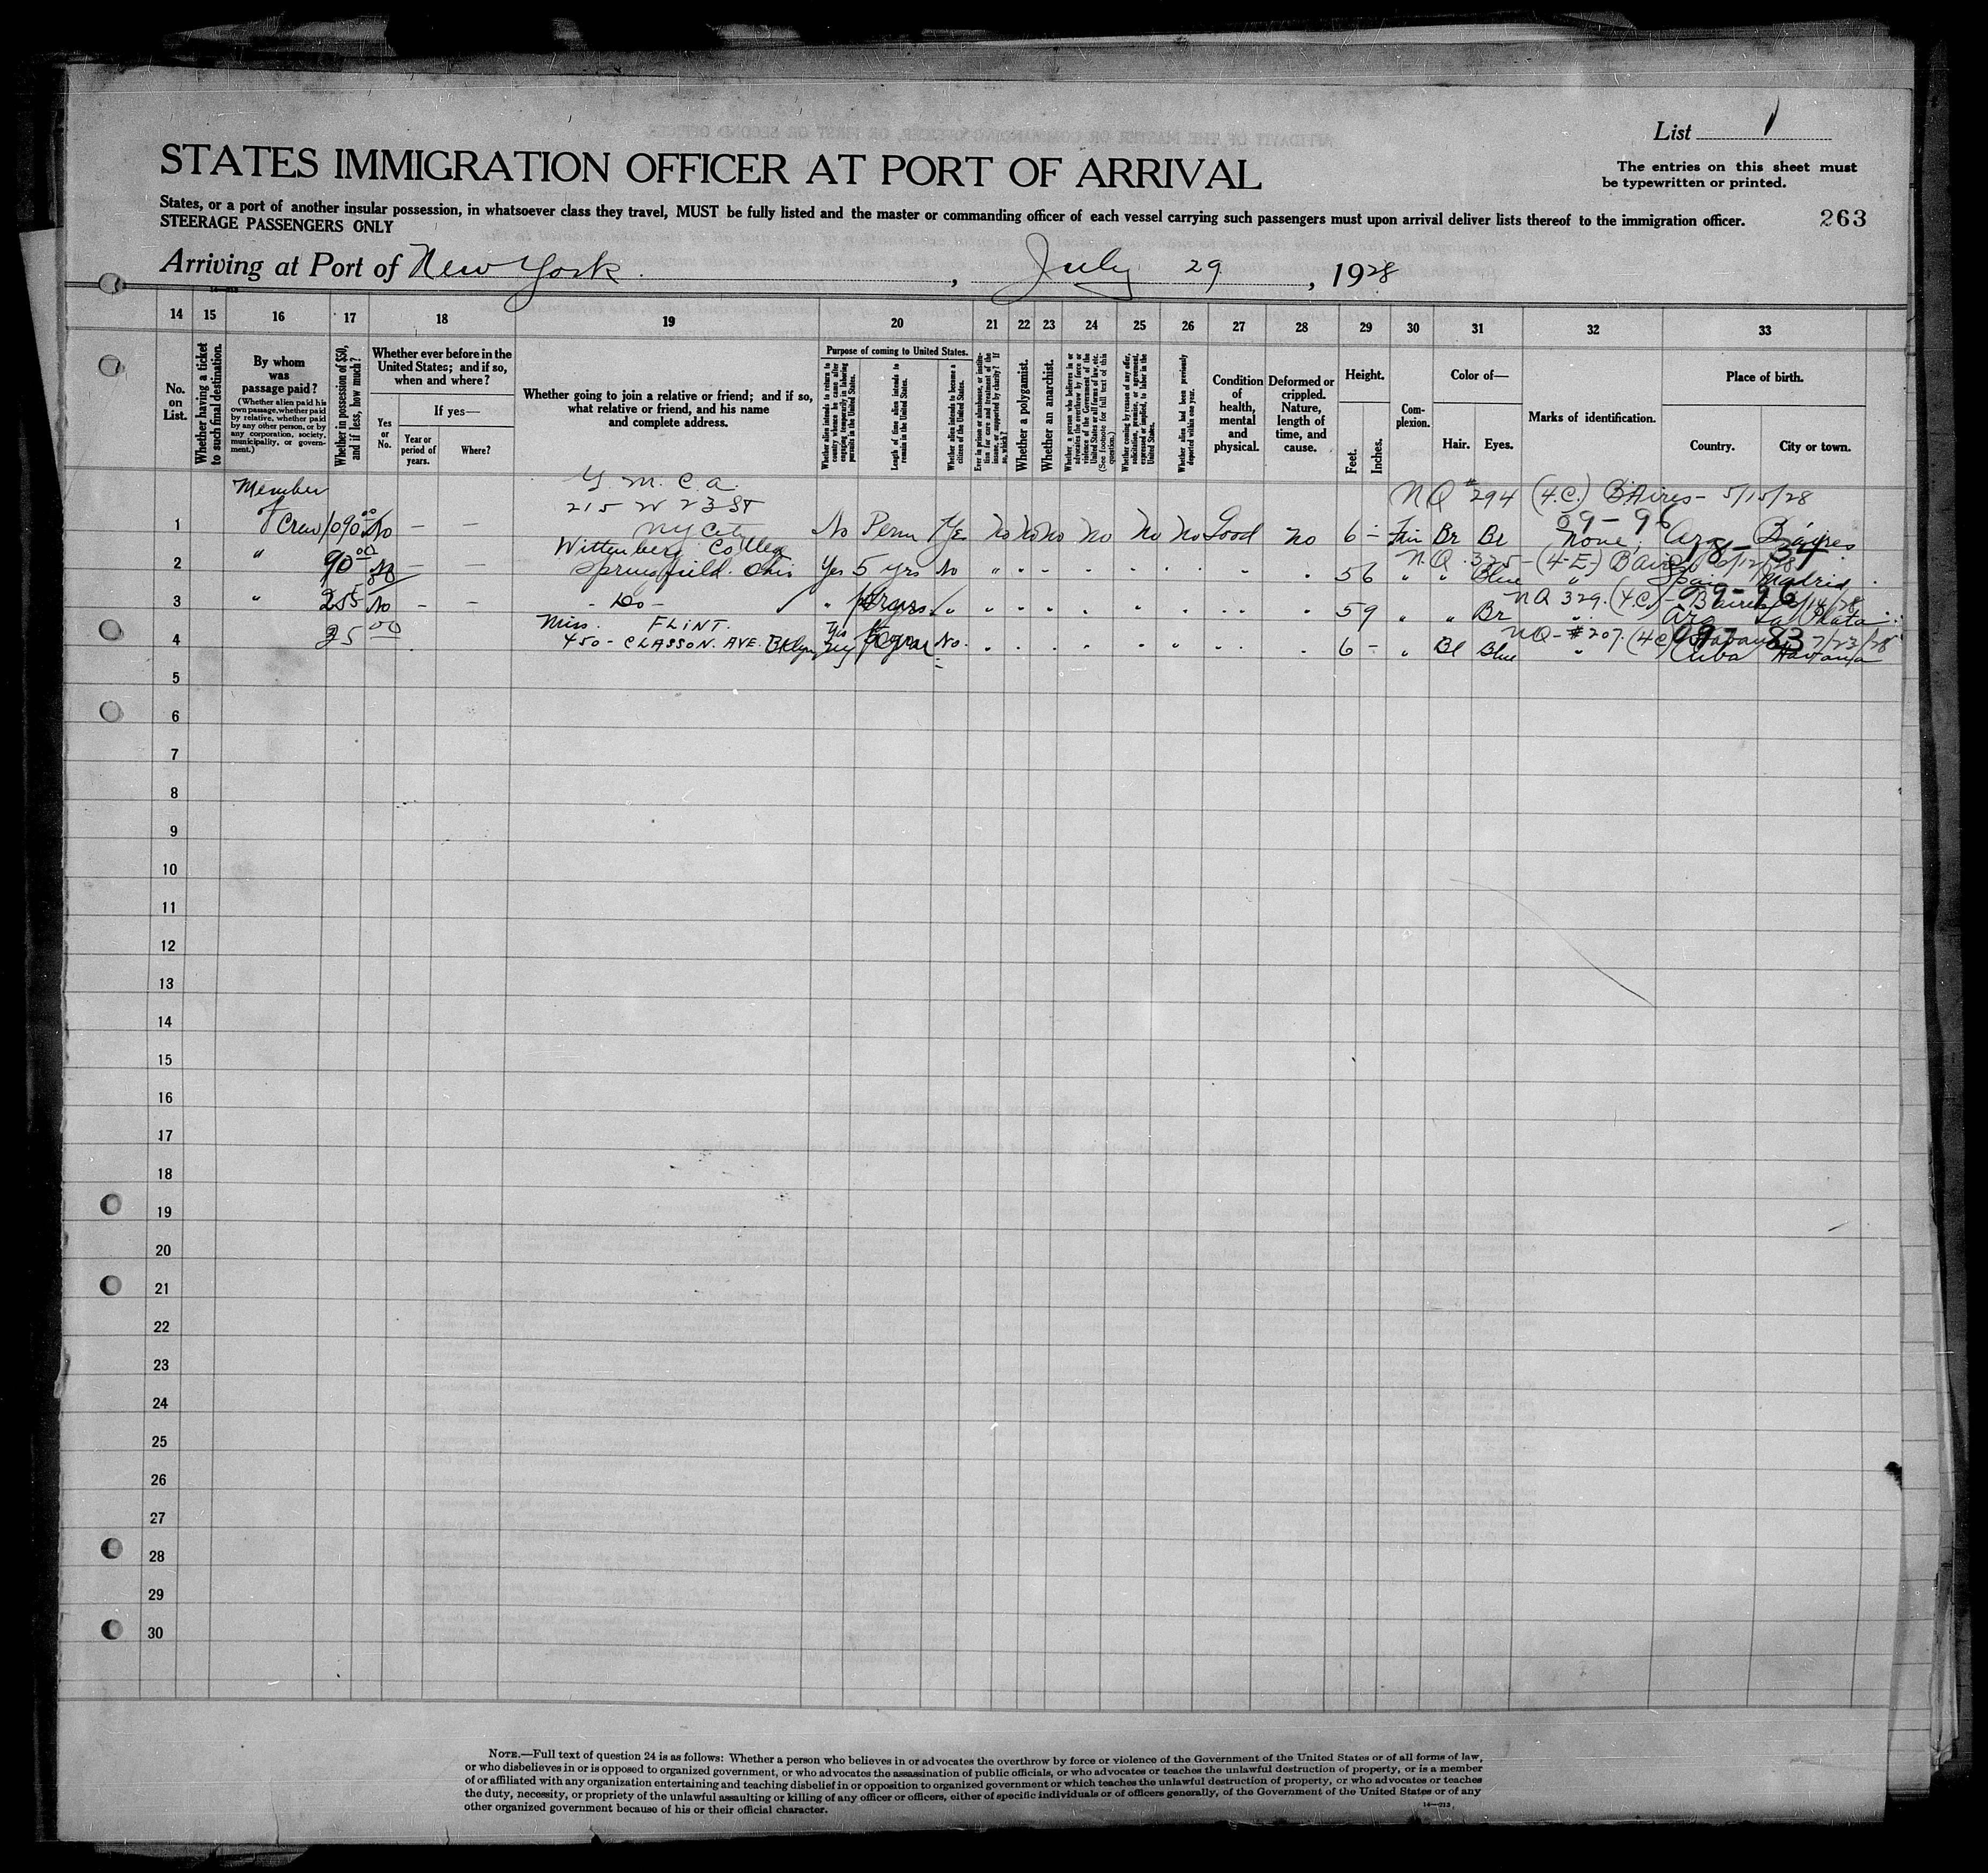 List 1
STATES IMMIGRATION OFFICER AT PORT OF ARRIVAL
The entries on this sheet must
be typewritten or printed.
States, or a port of another insular possession, in whatsoever class they travel, MUST be fully listed and the master or commanding officer of each vessel carrying such passengers must upon arrival deliver lists thereof to the immigration officer.
STEERAGE PASSENGERS ONLY
263
Arriving at Port of New York, July 29, 1928
14 15 16 17 18 19 20 21 22 23 24 25 26 27 28 29 30 31 32 33
No. on List.
Whether having a ticket to such final destination.
By whom was passage paid?
(Whether alien paid his own passage, whether paid by relative, whether paid by any other person, or by any corporation, society, municipality, or government.)
Whether in possession of $50, and if less, how much?
Whether ever before in the United States; and if so, when and where?
Yes or No.
If yes—
Year or period of years.
Where?
Whether going to join a relative or friend; and if so, what relative or friend, and his name and complete address.
Purpose of coming to United States.
Whether alien intends to return to country whence he came after engaging temporarily in laboring pursuits in the United States.
Length of time alien intends to remain in the United States.
Whether alien intends to become a citizen of the United States.
Ever in prison or almshouse, or institution for care and treatment of the insane, or supported by charity? If so, which?
Whether a polygamist.
Whether an anarchist.
Whether a person who believes in or advocates the overthrow by force or violence of the Government of the United States or all forms of law, etc. (See footnote for full text of this question.)
Whether coming by reason of any offer, solicitation, promise, or agreement, expressed or implied, to labor in the United States.
Whether alien had been previously deported within one year.
Condition of health, mental and physical.
Deformed or crippled. Nature, length of time, and cause.
Height.
Feet. Inches.
Complexion.
Color of—
Hair. Eyes.
Marks of identification.
Place of birth.
Country. City or town.
Member
Y. M. C. A.
NQ #294 (4.C.) B'Aires - 5/15/28
215 W 23 St
09-96
1 of Crew 1090.00 No — — NY City No Perm No No No No No No Good No 6 - Br Br None Arg B'aires
Wittenberg College
18-34
N.Q. 325 - (4-E-)
2 " 90.00 No — — Springfield. Ohio Yes 5 yrs No " 5 6 " " Blue " Spain Madrid
09-96
NQ 329. (4.C)
3 " 255 No - - - Do - " " 5 9 " " Br " Arg La Plata
Miss. FLINT.
NQ - #207. (4C) 7/23/28
4 25.00 450 - CLASSON. AVE. Bklyn NY No. 6 - " Bl Blue " Cuba Havana
5
6
7
8
9
10
11
12
13
14
15
16
17
18
19
20
21
22
23
24
25
26
27
28
29
30
NOTE.—Full text of question 24 is as follows: Whether a person who believes in or advocates the overthrow by force or violence of the Government of the United States or of all forms of law,
or who disbelieves in or is opposed to organized government, or who advocates the assassination of public officials, or who advocates or teaches the unlawful destruction of property, or is a member
of or affiliated with any organization entertaining and teaching disbelief in or opposition to organized government or which teaches the unlawful destruction of property, or who advocates or teaches
the duty, necessity, or propriety of the unlawful assaulting or killing of any officer or officers, either of specific individuals or of officers generally, of the Government of the United States or of any
other organized government because of his or their official character.
14—213